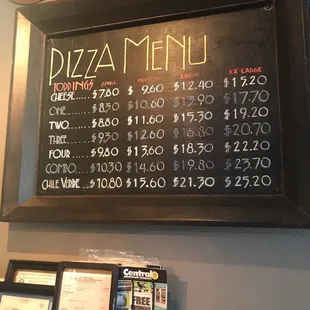 PIZZA MENU
TOPPINGS SMALL MEDIUM LARGE EX LARGE
CHEESE..... $7.80 $ 9.60 $12.40 $15.20
ONE........ $8.30 $10.60 $13.90 $17.70
TWO........ $8.80 $11.60 $15.30 $19.20
THREE..... $9.30 $12.60 $16.80 $20.70
FOUR....... $9.80 $13.60 $18.30 $22.20
COMBO..... $10.30 $14.60 $19.80 $23.70
CHILE VERDE.. $10.80 $15.60 $21.30 $25.20
Central
FREE